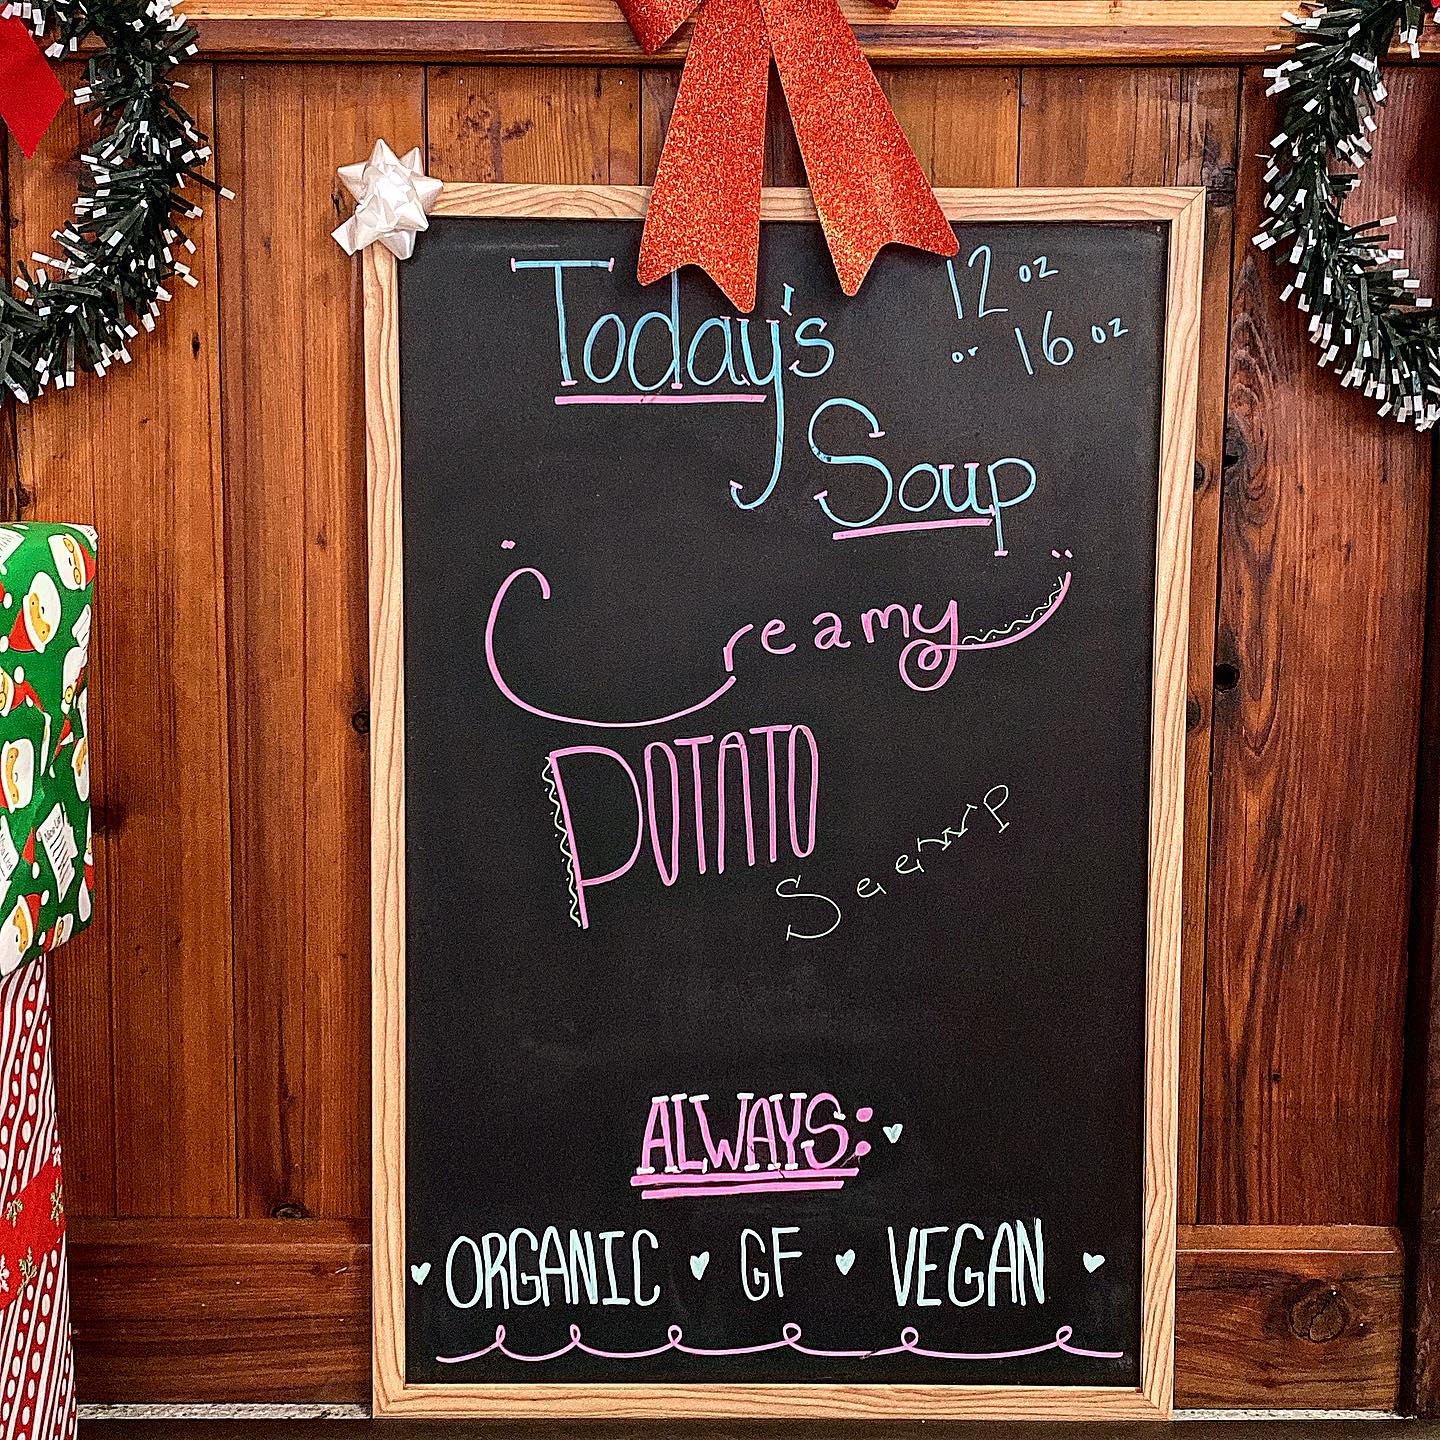 Today's
12 oz
or 16 oz
Soup
"Creamy"
POTATO
Seewp
ALWAYS:
ORGANIC GF VEGAN